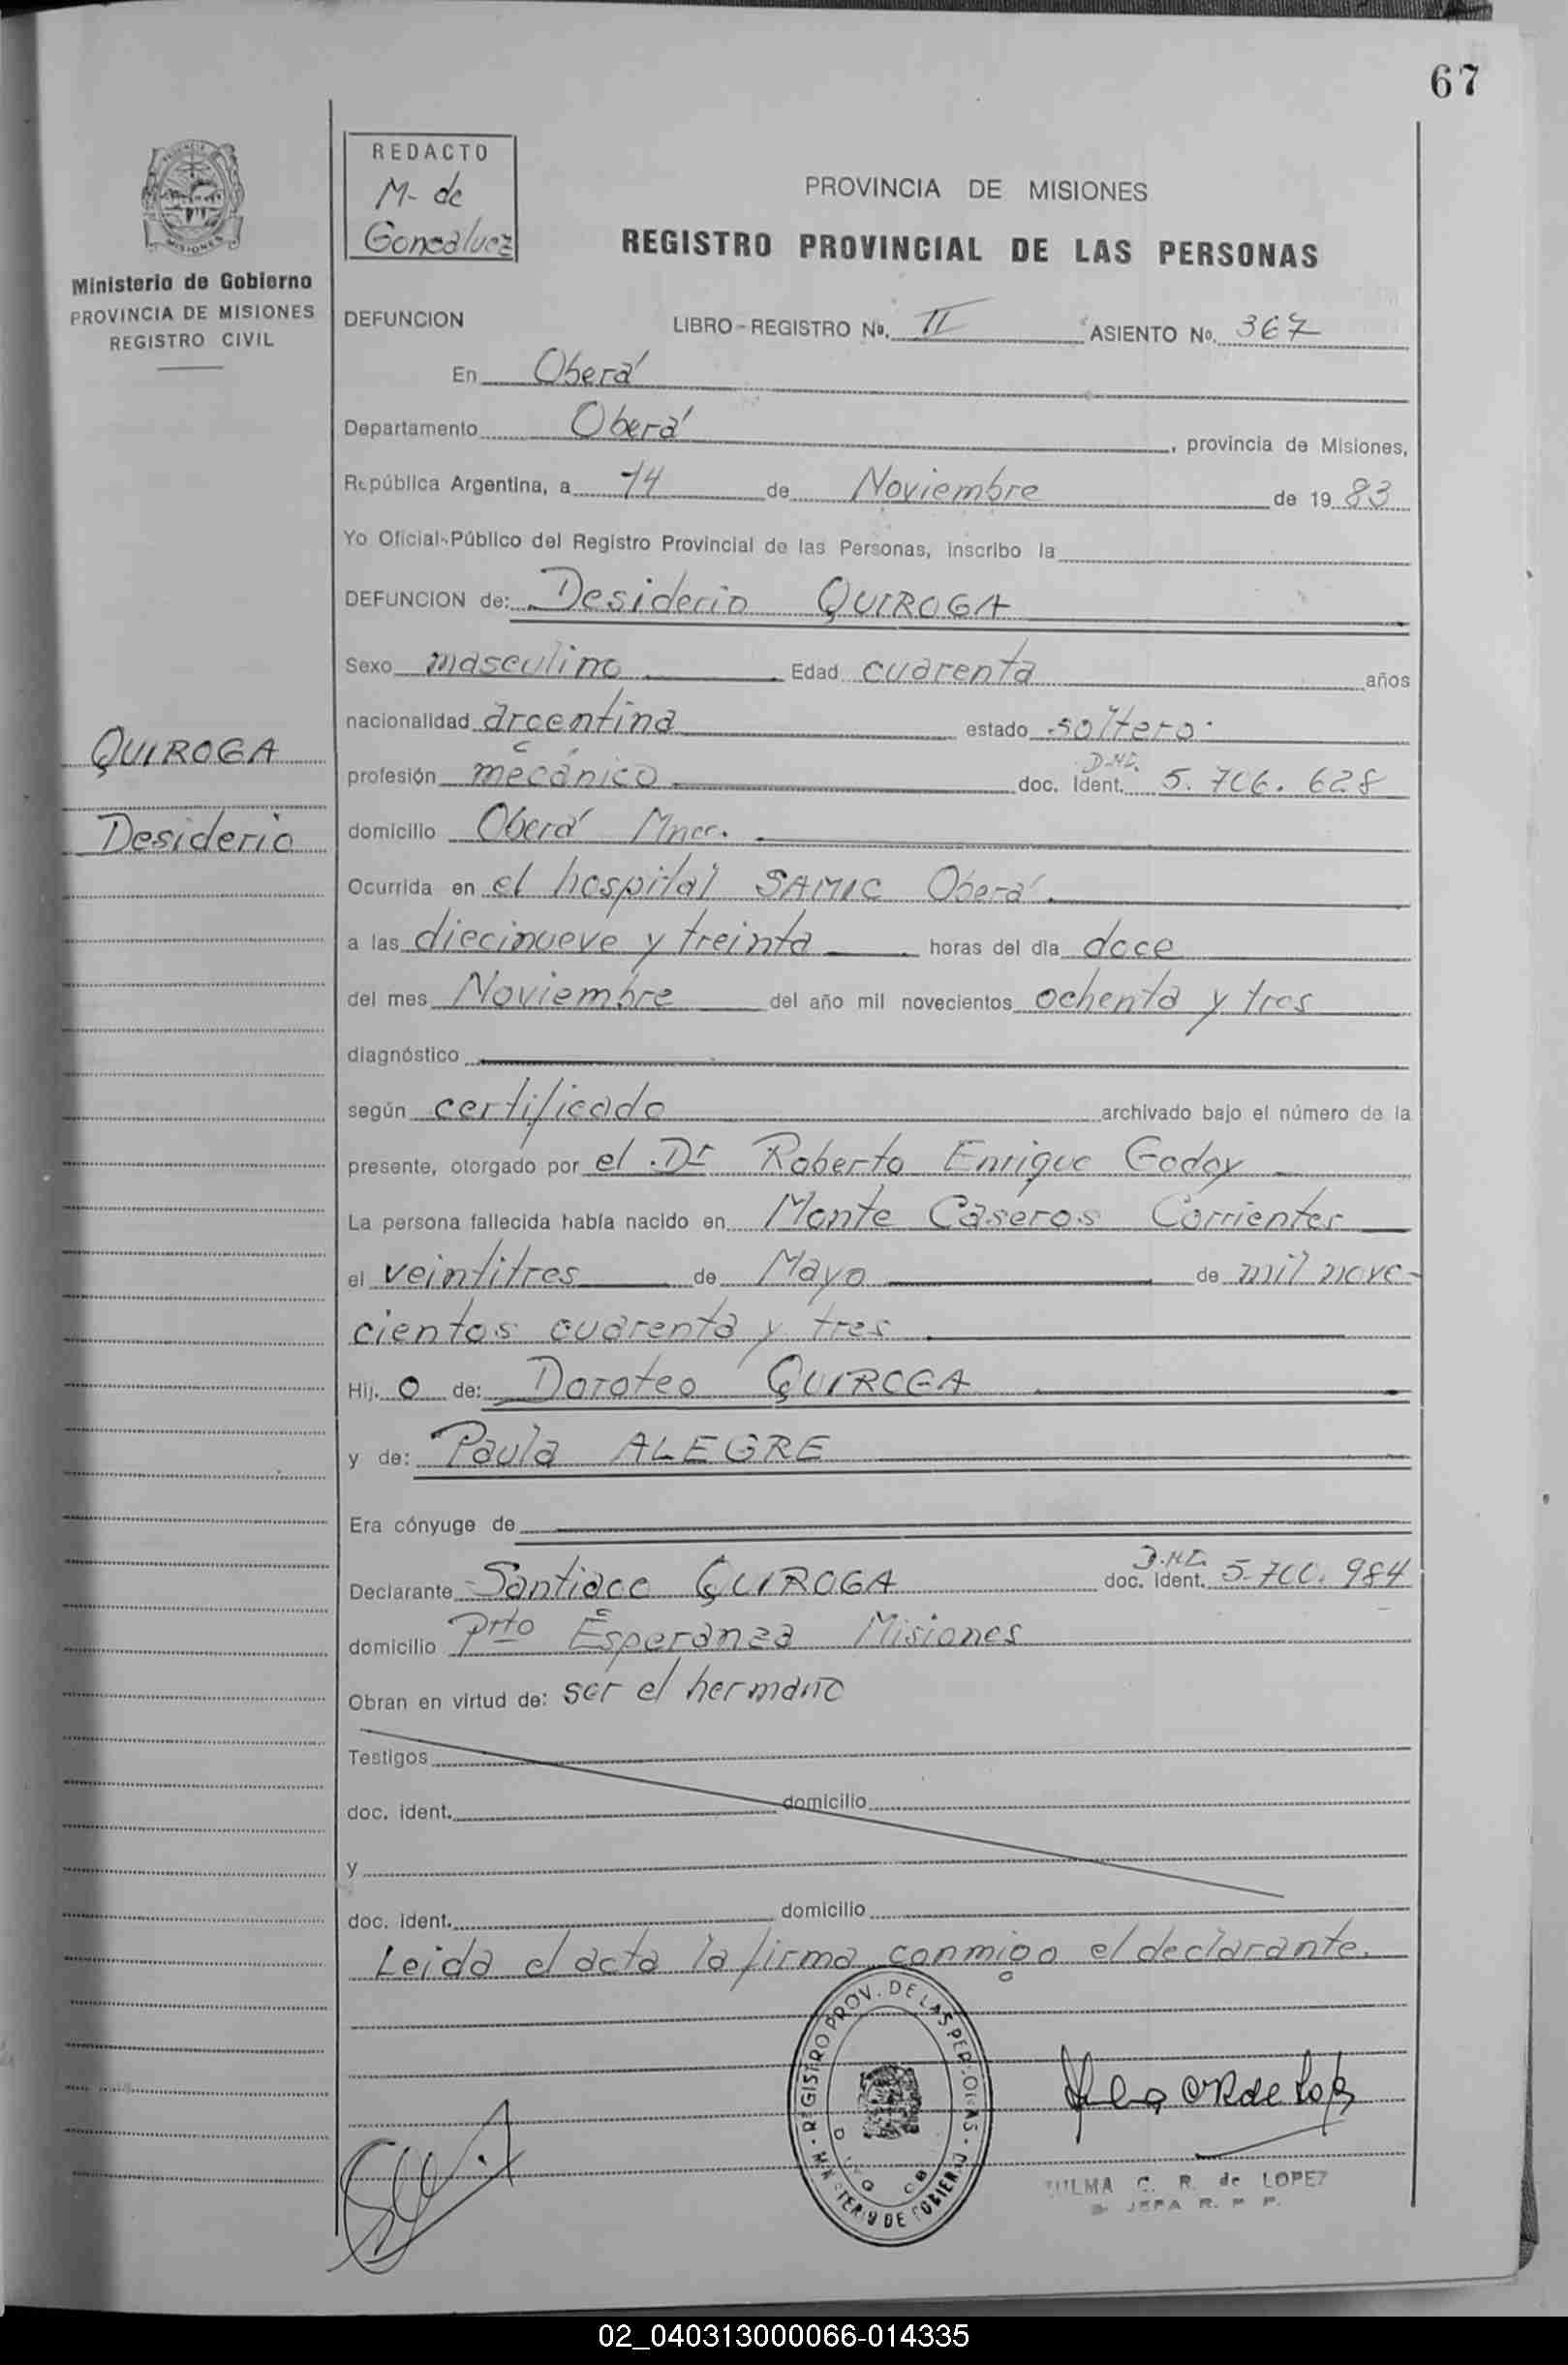 67
REDACTO
M- de
Goncalvez
PROVINCIA DE MISIONES
REGISTRO PROVINCIAL DE LAS PERSONAS
MISIONES
Ministerio de Gobierno
PROVINCIA DE MISIONES
REGISTRO CIVIL
DEFUNCION LIBRO-REGISTRO No. II ASIENTO No. 367
En Oberá
Departamento Oberá, provincia de Misiones,
República Argentina, a 14 de Noviembre de 1983
Yo Oficial-Público del Registro Provincial de las Personas, inscribo la
DEFUNCION de: Desiderio QUIROGA
Sexo masculino Edad cuarenta años
nacionalidad argentina estado soltero
QUIROGA
profesión mecánico doc. Ident. D.N.I. 5.706.628
Desiderio
domicilio Oberá Mnes.
Ocurrida en el hospital SAMIC Oberá.
a las diecinueve y treinta horas del dia doce
del mes Noviembre del año mil novecientos ochenta y tres
diagnóstico
según certificado archivado bajo el número de la
presente, otorgado por el Dr Roberto Enrique Godoy
La persona fallecida había nacido en Monte Caseros Corrientes
el veintitres de Mayo de mil nove-
cientos cuarenta y tres
Hij. o de: Doroteo QUIROGA
y de: Paula ALEGRE
Era cónyuge de
Declarante Santiago QUIROGA doc. Ident. D.N.I. 5.700.984
domicilio Prto Esperanza Misiones
Obran en virtud de: ser el hermano
Testigos
doc. ident. domicilio
y
doc. ident. domicilio
Leida el acta la firma conmigo el declarante.
REGISTRO PROV. DE LAS PERSONAS - MINISTERIO DE GOBIERNO
C. R. de LOPEZ
JEFA R. P. P.
02_040313000066-014335